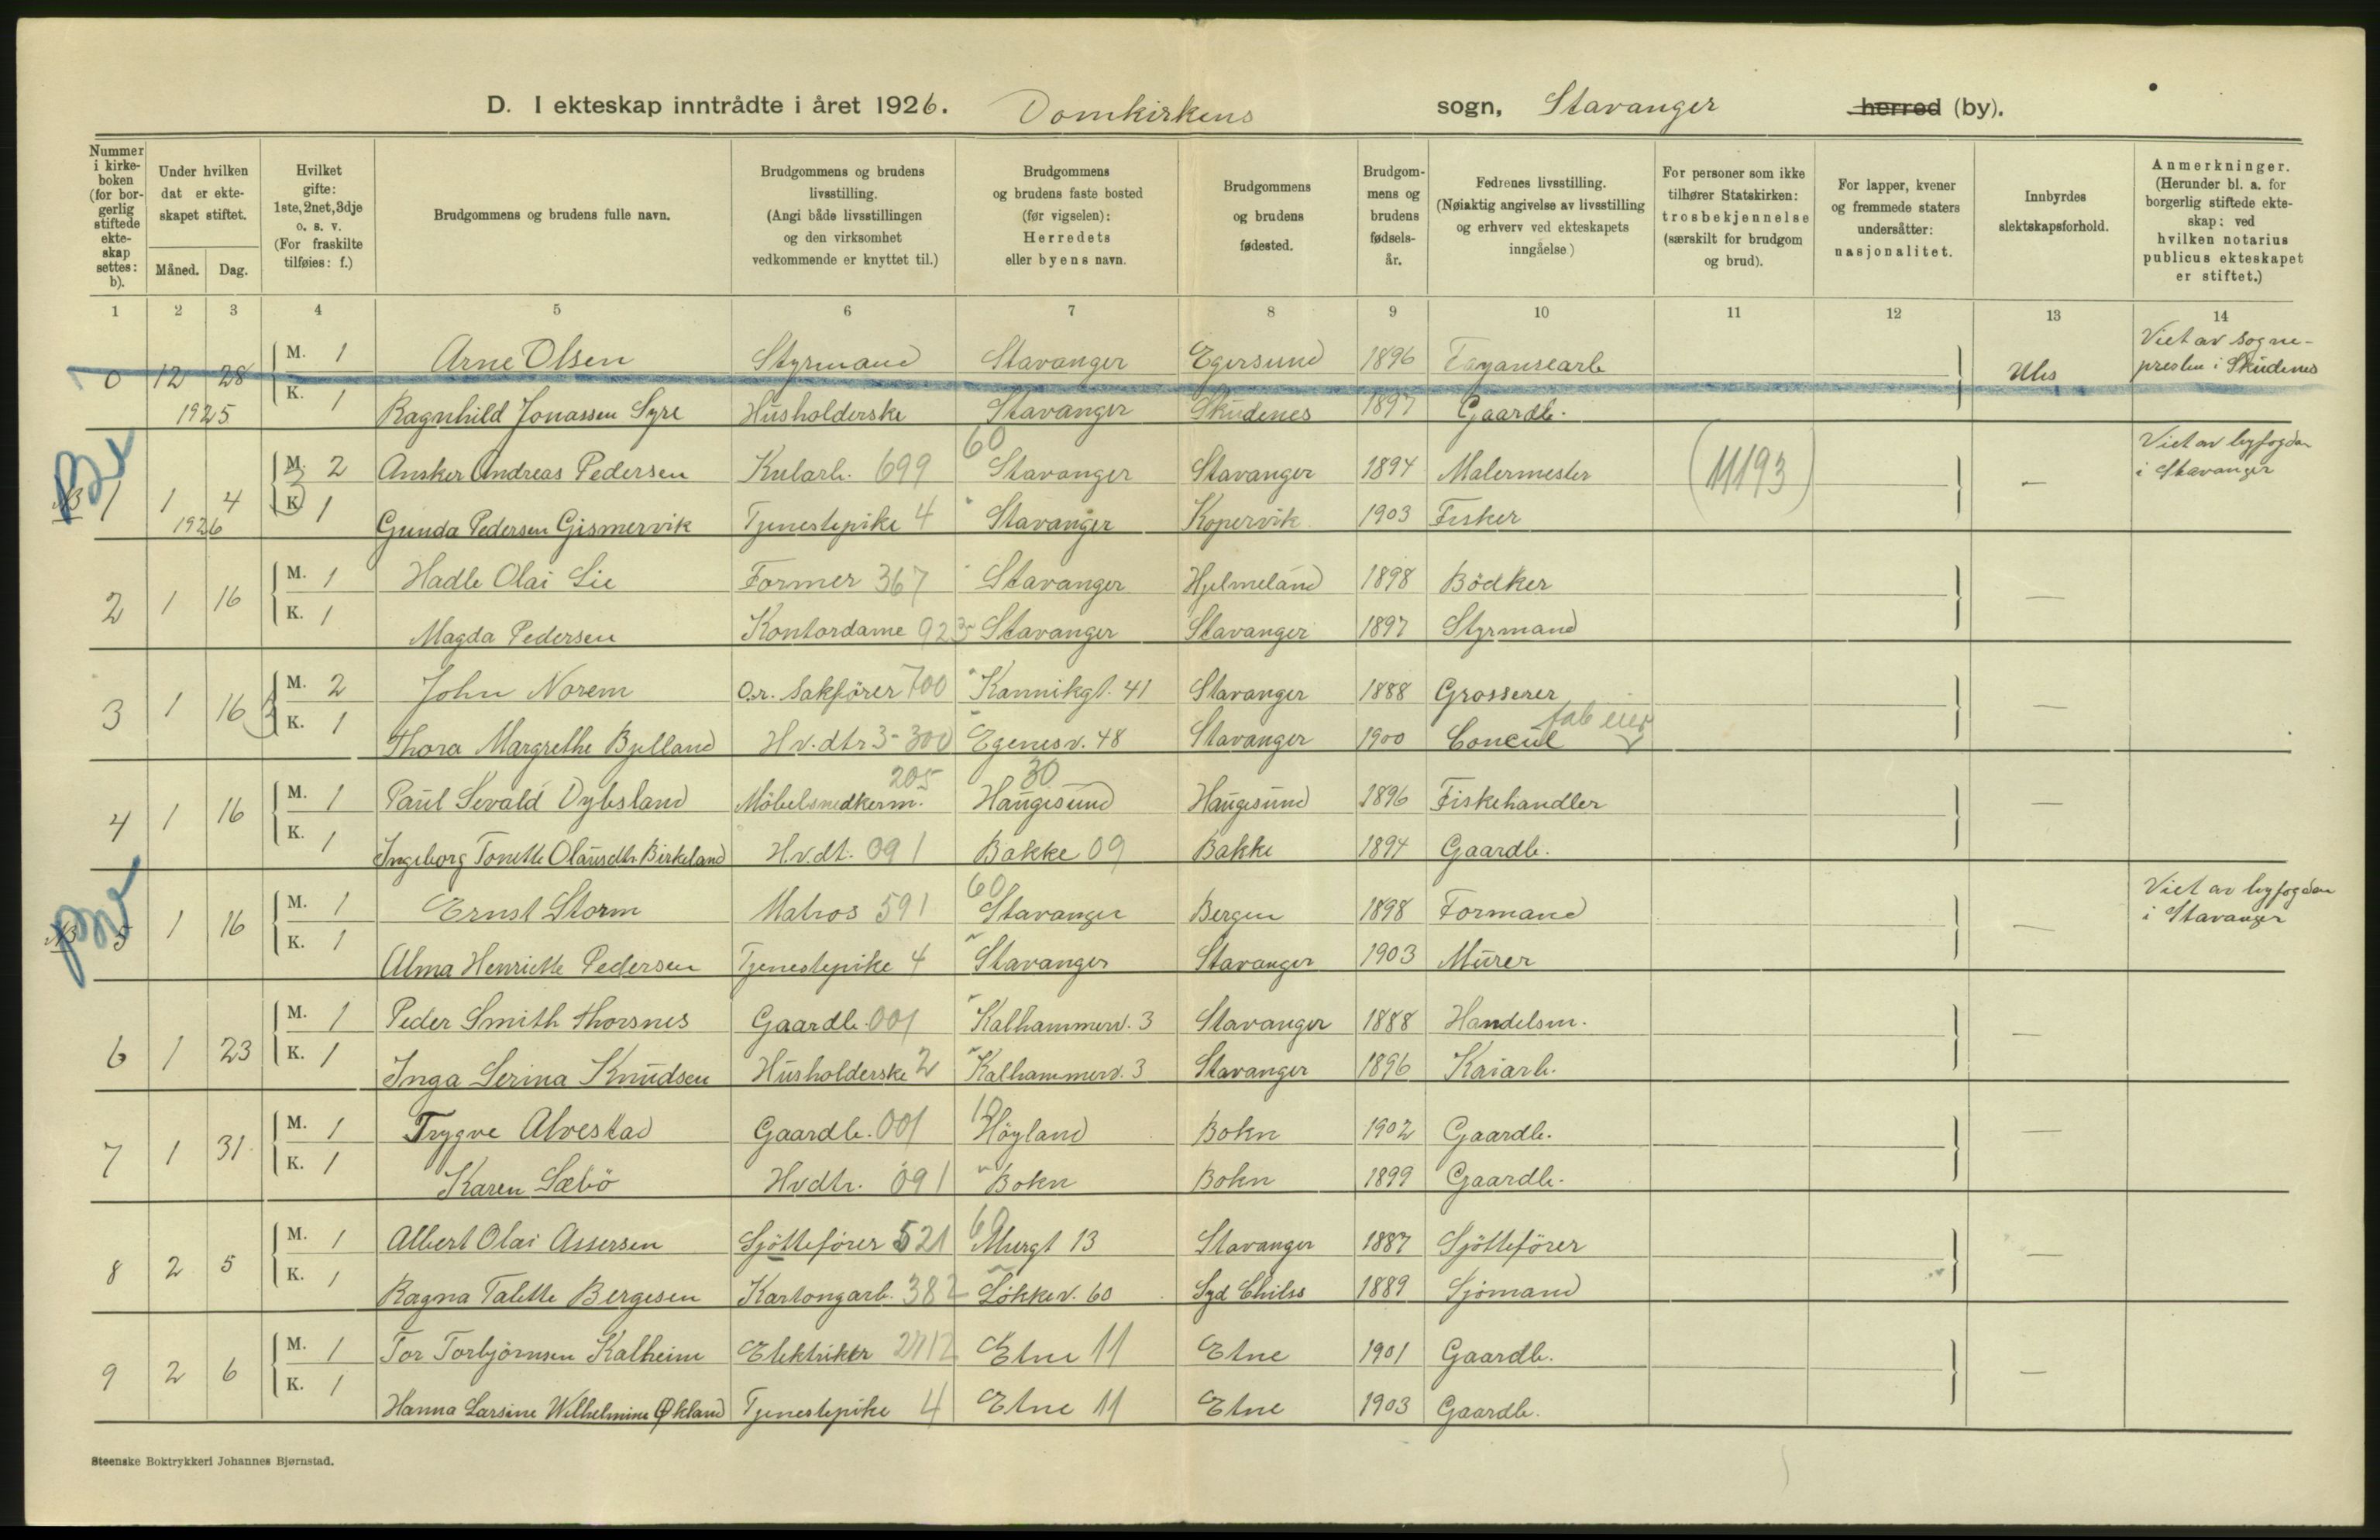 D. I ekteskap inntrådte i året 1926. Domkirkens sogn, Stavanger herred (by).
Nummer i kirke-boken (for bor-gerlig stiftede ekte-skap settes: b).
Under hvilken dat er ekte-skapet stiftet.
Måned. Dag.
Hvilket gifte: 1ste, 2net, 3dje o. s. v. (For fraskilte tilføies: f.)
Brudgommens og brudens fulle navn.
Brudgommens og brudens livsstilling. (Angi både livsstillingen og den virksomhet vedkommende er knyttet til.)
Brudgommens og brudens faste bosted (før vigselen): Herredets eller byens navn.
Brudgommens og brudens fødested.
Brudgom-mens og brudens fødsels-år.
Fedrenes livsstilling. (Nøiaktig angivelse av livsstilling og erhverv ved ekteskapets inngåelse)
For personer som ikke tilhører Statskirken: trosbekjennelse (særskilt for brudgom og brud).
For lapper, kvener og fremmede staters undersåtter: nasjonalitet.
Innbyrdes slektskapsforhold.
Anmerkninger. (Herunder bl. a. for borgerlig stiftede ekte-skap: ved hvilken notarius publicus ekteskapet er stiftet.)
1 2 3 4 5 6 7 8 9 10 11 12 13 14
0 12 28 M. 1 Arne Olsen Styrmand Stavanger Egersund 1896 Viet av sogne-presten i Skudenes
1925 K. 1 Ragnhild Jonassen Syre Husholderske Stavanger Skudenes 1897 Gaardb.
NB 1 1 4 M. 2 Ansker Andreas Pedersen Kularb. 699 60 Stavanger Stavanger 1894 Malermester (11193) — Viet av byfogden i Stavanger
1926 K. 1 Gunda Pedersen Gismervik Tjenestepike 4 Stavanger Kopervik 1903 Fisker
2 1 16 M. 1 Hadle Olai Lie Former 367 Stavanger Hjelmeland 1898 Bödker —
K. 1 Magda Pedersen Kontordame 923 Stavanger Stavanger 1897 Styrmand
3 1 16 M. 2 John Norem O.r. Sakförer 700 Kannikgt. 41 Stavanger 1888 Grosserer —
K. 1 Thora Margrethe Bjelland Hv.dtr 3-300 Egenesv. 48 Stavanger 1900 Concul fab eier
4 1 16 M. 1 Paul Sevald Dybsland Möbelsnedkerm. 205 30 Haugesund Haugesund 1896 Fiskehandler —
K. 1 Ingeborg Tonette Olausdtr. Birkeland H.v.dt. 091 Bakke 09 Bakke 1894 Gaardb.
NB 5 1 16 M. 1 Ernst Storm Matros 591 60 Stavanger Bergen 1898 Formand — Viet av byfogden i Stavanger
K. 1 Alma Henriette Pedersen Tjenestepike 4 Stavanger Stavanger 1903 Murer
6 1 23 M. 1 Peder Smith Thorsnes Gaardb. 001 Kalhammerv. 3 Stavanger 1888 Handelsm. —
K. 1 Inga Serina Knudsen Husholderske 2 Kalhammerv. 3 Stavanger 1896 Kaiarb.
7 1 31 M. 1 Trygve Alvestad Gaardb. 001 10 Höyland Bokn 1902 Gaardb. —
K. 1 Karen Sæbö Hvdtr. 091 Bokn Bokn 1899 Gaardb.
8 2 5 M. 1 Albert Olai Assersen Sjöttefører 521 60 Murgt 13 Stavanger 1887 Sjötteförer —
K. 1 Ragna Talette Bergesen Kartongarb. 382 Lökkev. 60 Syd 1889 Sjömand
9 2 6 M. 1 Tor Torbjörnsen Kalheim Elektriker 2712 Etne 11 Etne 1901 Gaardb. —
K. 1 Hanna Larsine Wilhelmine Økland Tjenestepike 4 Etne 11 Etne 1903 Gaardb.
Steenske Boktrykkeri Johannes Bjørnstad.